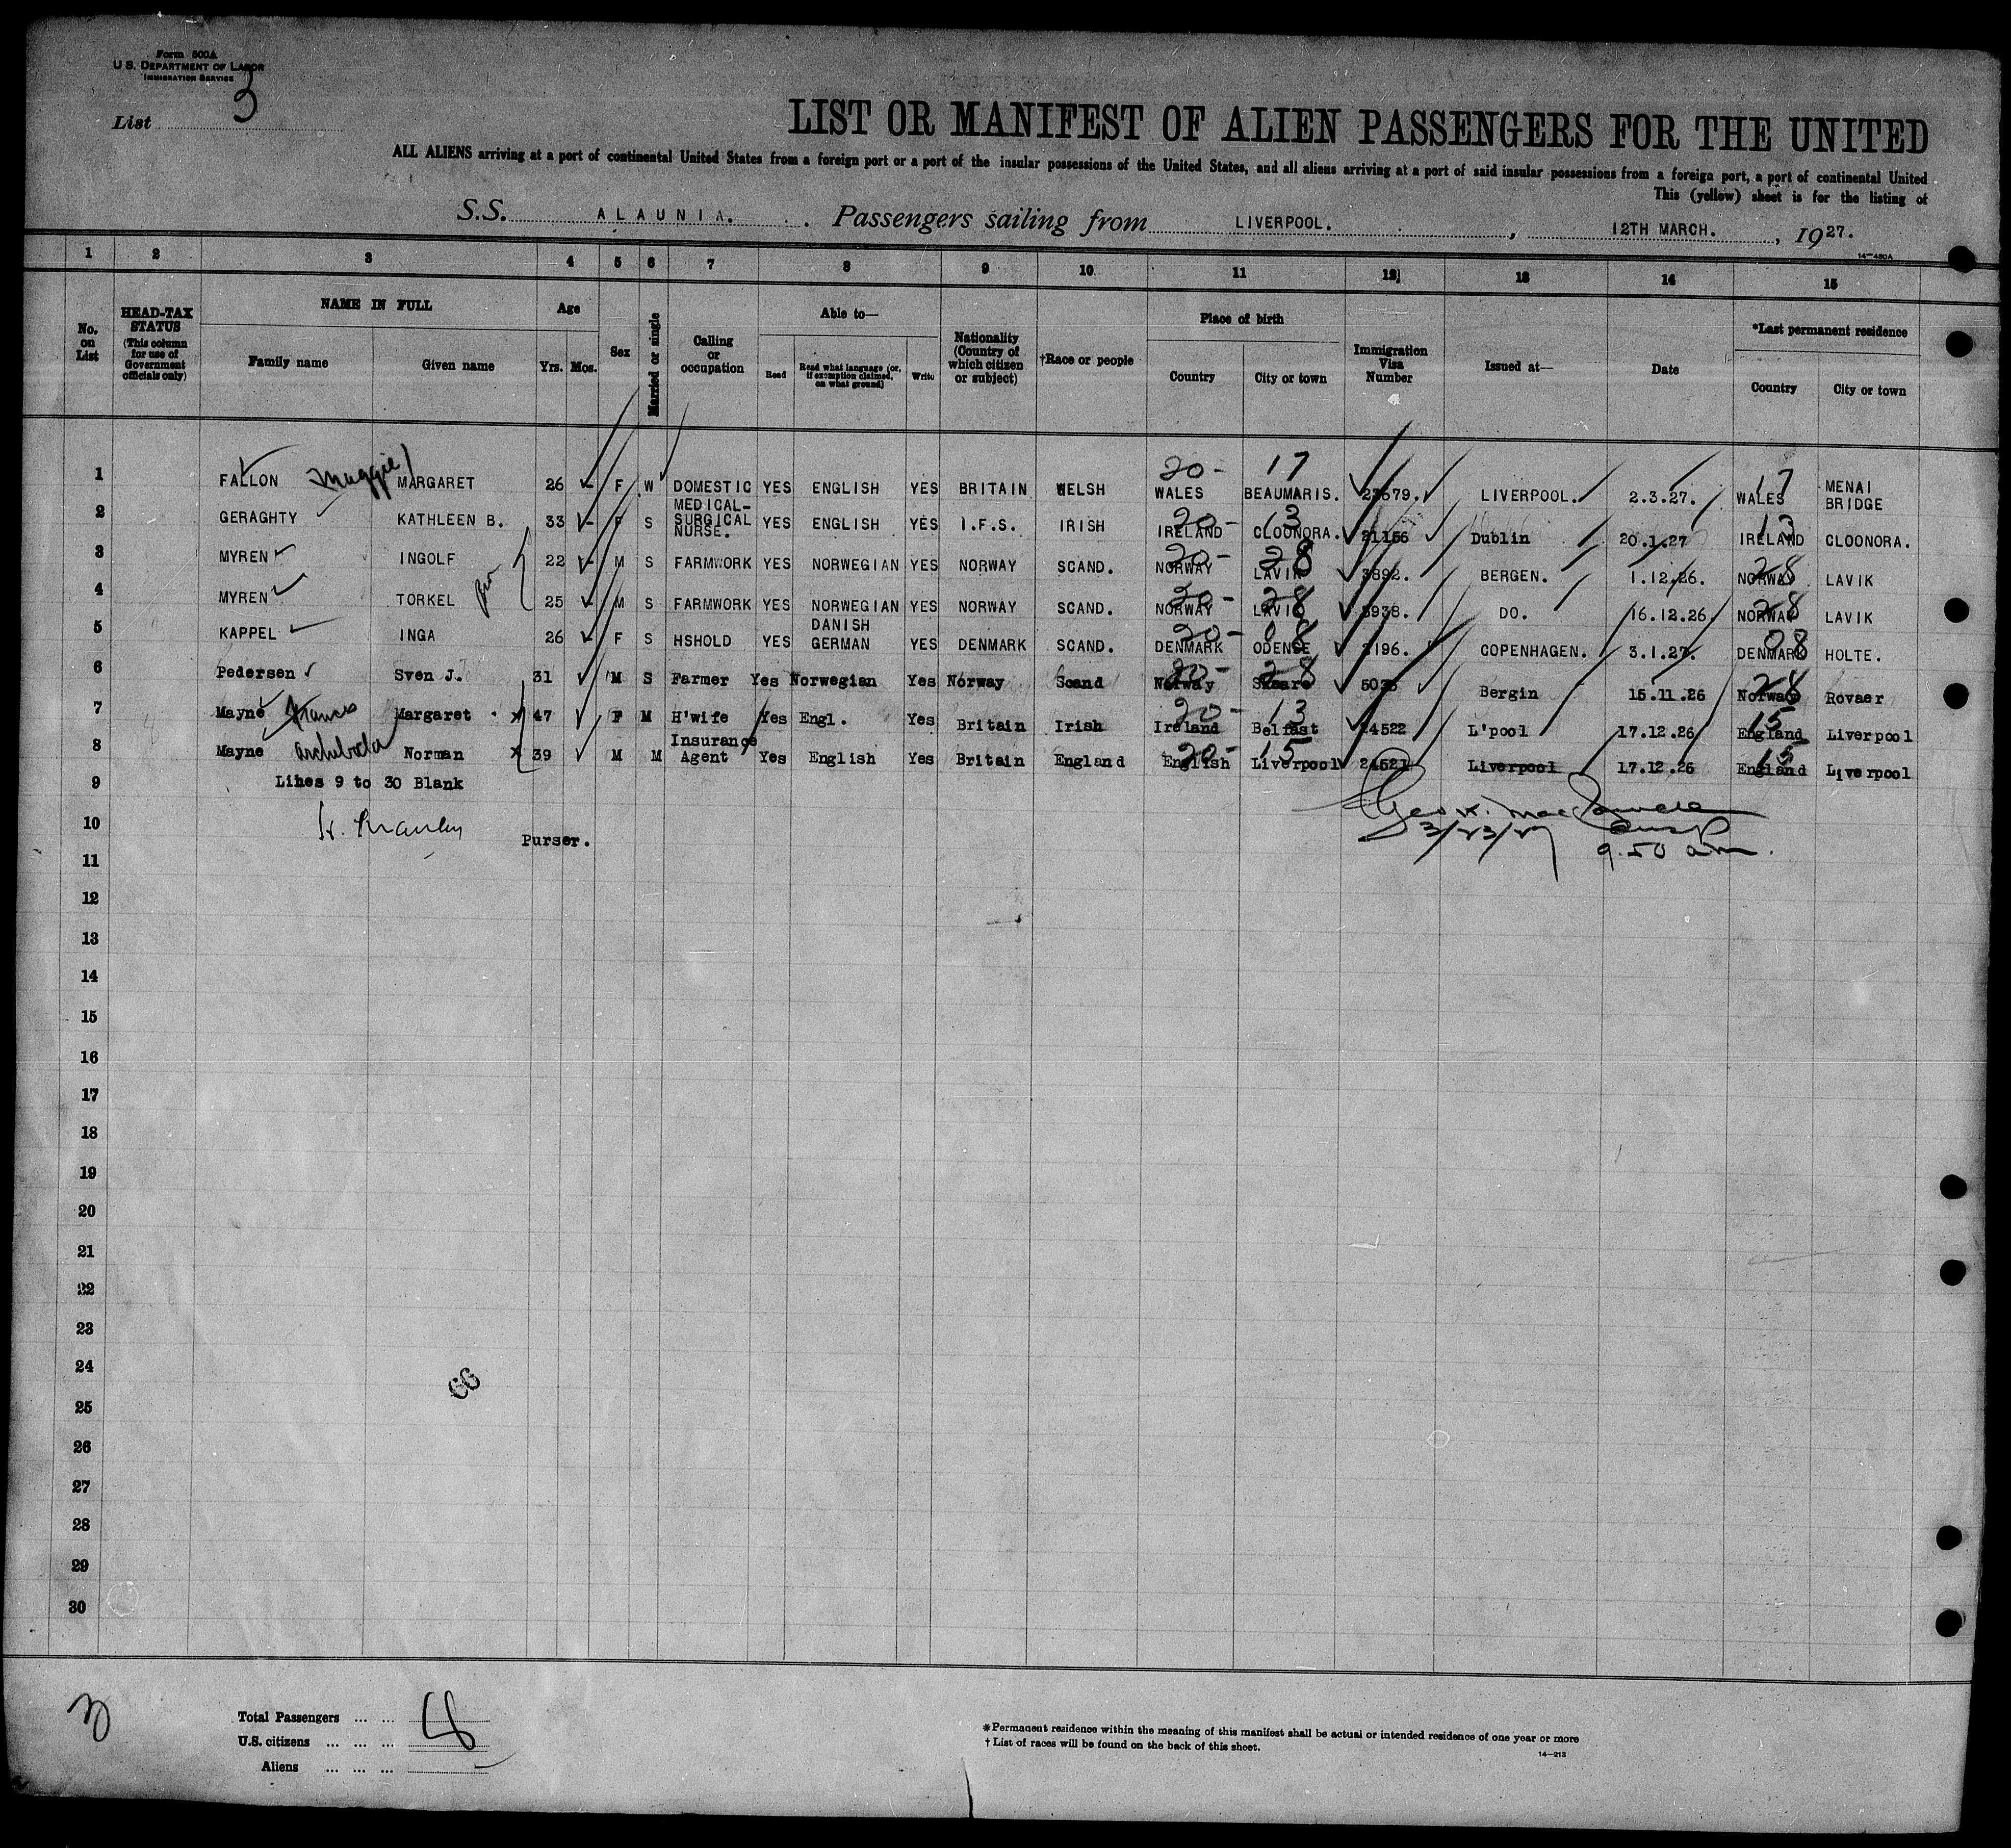 Form 500A
U. S. DEPARTMENT OF LABOR
IMMIGRATION SERVICE
List 3
LIST OR MANIFEST OF ALIEN PASSENGERS FOR THE UNITED
ALL ALIENS arriving at a port of continental United States from a foreign port or a port of the insular possessions of the United States, and all aliens arriving at a port of said insular possessions from a foreign port, a port of continental United
This (yellow) sheet is for the listing of
S.S. ALAUNIA. Passengers sailing from LIVERPOOL. , 12TH MARCH. , 1927.
14-480A
1 2 3 4 5 6 7 8 9 10 11 12 13 14 15
No. on List
HEAD-TAX STATUS (This column for use of Government officials only)
NAME IN FULL
Family name Given name
Age
Yrs. Mos.
Sex
Married or single
Calling or occupation
Able to—
Read Read what language (or, if exemption claimed, on what ground) Write
Nationality (Country of which citizen or subject)
†Race or people
Place of birth
Country City or town
Immigration Visa Number
Issued at—
Date
*Last permanent residence
Country City or town
20- 17 17
1 FALLON Maggie MARGARET 26 F W DOMESTIC YES ENGLISH YES BRITAIN WELSH WALES BEAUMARIS. 23679. LIVERPOOL. 2.3.27. WALES MENAI BRIDGE
20- 13 13
2 GERAGHTY KATHLEEN B. 33 F S MEDICAL-SURGICAL NURSE. YES ENGLISH YES I.F.S. IRISH IRELAND CLOONORA. 21156 Dublin 20.1.27 IRELAND CLOONORA.
20- 28 28
3 MYREN INGOLF 22 M S FARMWORK YES NORWEGIAN YES NORWAY SCAND. NORWAY LAVIK 3892. BERGEN. 1.12.26. NORWAY LAVIK
20- 28 28
4 MYREN TORKEL 25 M S FARMWORK YES NORWEGIAN YES NORWAY SCAND. NORWAY LAVIK 3938. DO. 16.12.26. NORWAY LAVIK
20- 08 08
5 KAPPEL INGA 26 F S HSHOLD YES DANISH GERMAN YES DENMARK SCAND. DENMARK ODENSE 2196. COPENHAGEN. 3.1.27. DENMARK HOLTE.
20- 28 28
6 Pedersen Sven J. 31 M S Farmer Yes Norwegian Yes Norway Scand Norway Bergin 15.11.26 Norway Rovaer
20- 13 15
7 Mayne Frances Margaret x 47 F M H'wife Yes Engl. Yes Britain Irish Ireland Belfast 24522 L'pool 17.12.26 England Liverpool
20- 15 15
8 Mayne Archibald Norman x 39 M M Insurance Agent Yes English Yes Britain England English Liverpool 24521 Liverpool 17.12.26 England Liverpool
9 Lines 9 to 30 Blank
10 Purser.
3/23/27 9.50 am.
11
12
13
14
15
16
17
18
19
20
21
22
23
24
66
25
26
27
28
29
30
3
Total Passengers ... ... 8
U.S. citizens ... ... ...
Aliens ... ... ...
*Permanent residence within the meaning of this manifest shall be actual or intended residence of one year or more
† List of races will be found on the back of this sheet.
14-213